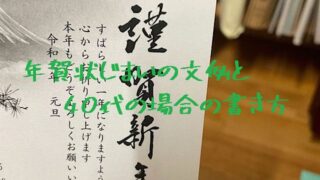 謹賀新年
すばらしい一年になりますよう
心からお祈り申し上げます
本年もどうぞよろしくお願いい
令和 年 元旦
年賀状じまいの文例と
60代の場合の書き方